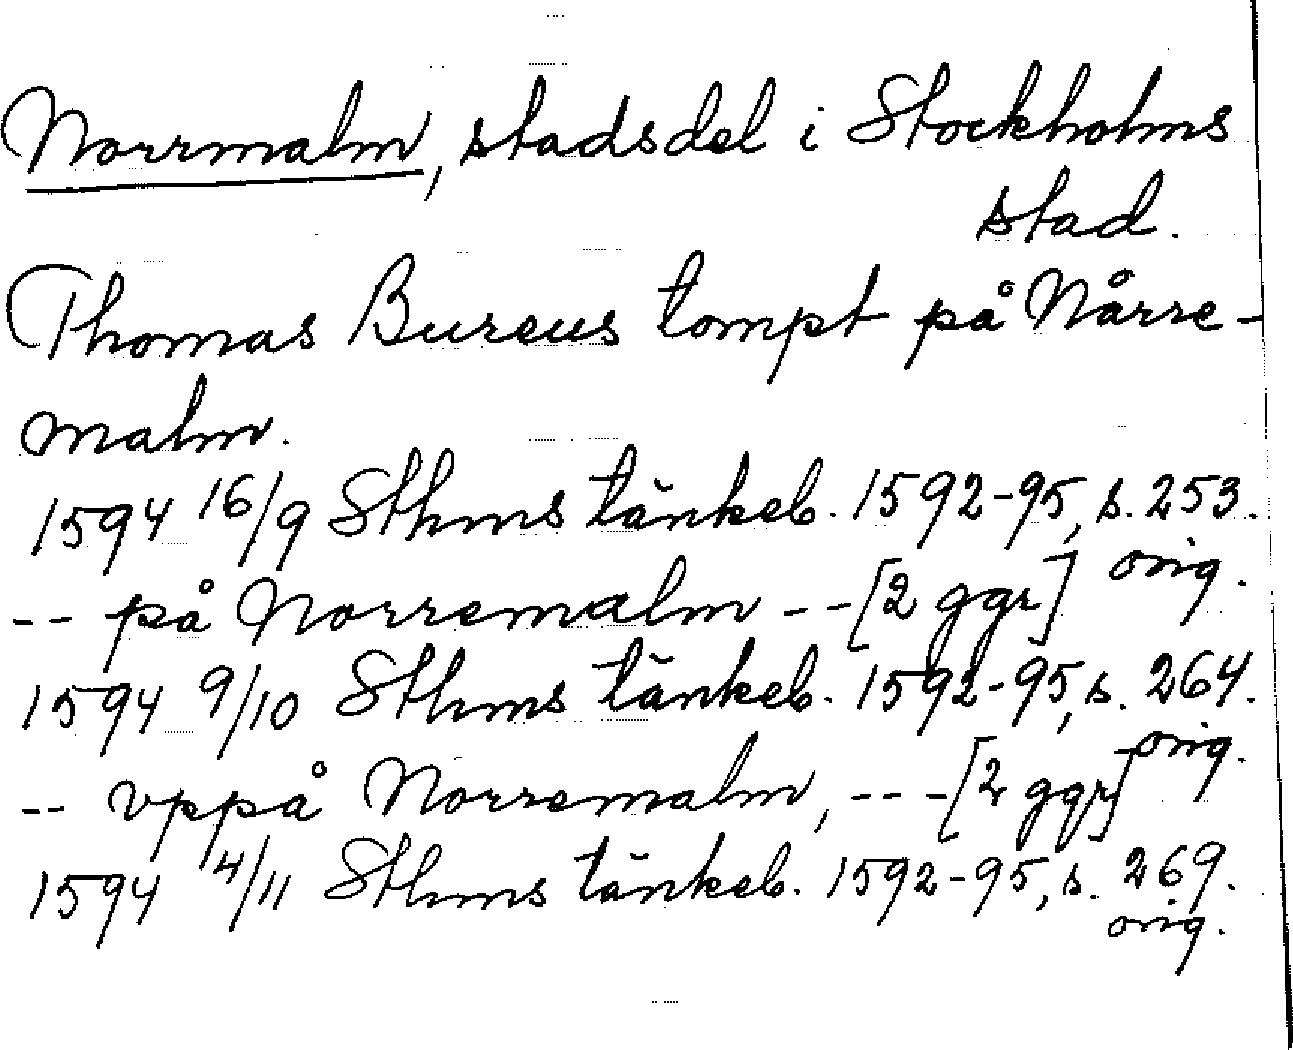 Norrmalm, stadsdel i Stockholms
stad.
Thomas Bureus tompt på Nårre-
malm.
1594 16/9 Sthms tänkeb. 1592-95, s. 253.
orig.
-- på Norremalm --[2 ggr]
1594 9/10 Sthms tänkeb. 1592-95, s. 264.
orig.
-- vppå Norremalm, ---[2 ggr]
1594 14/11 Sthms tänkeb. 1592-95, s. 269.
orig.